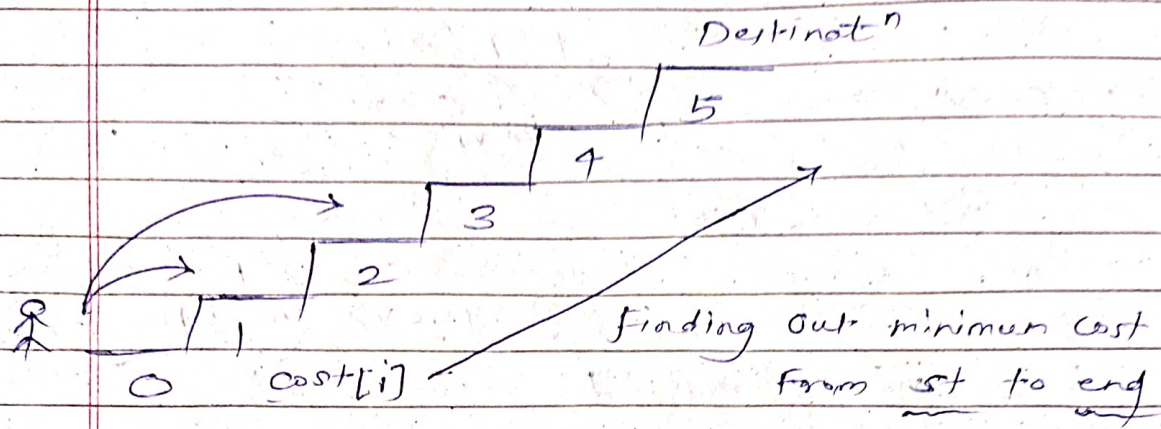 Destinatⁿ
5
4
3
2
1
0
cost[i]
finding out minimum cost
from st to end